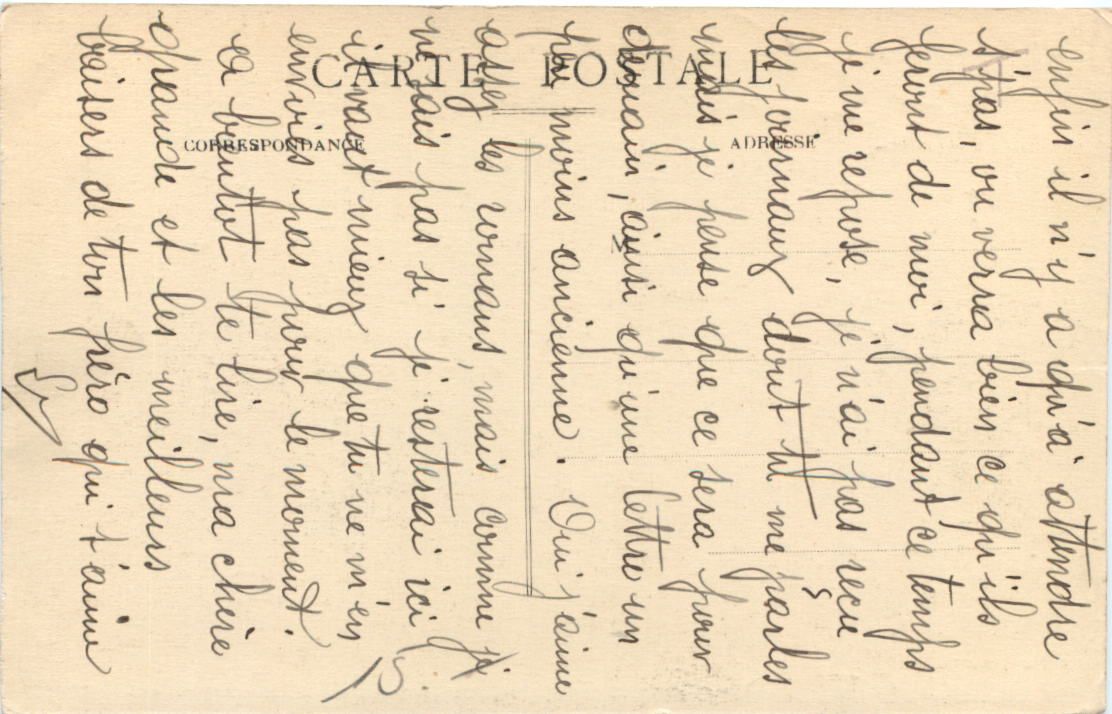 CARTE POSTALE
CORRESPONDANCE
ADRESSE
M
enfin il n'y a qu'à attendre
, on verra bien ce qu'ils
feront de moi, pendant ce temps
je me repose, je n'ai pas reçu
les journaux dont tu me parles
mais je pense que ce sera pour
demain, ainsi qu'une lettre un
peu moins ancienne. Oui j'aime
assez les romans, mais comme je
ne sais pas si je resterai ici
il vaut mieux que tu ne m'en
envoies pas pour le moment.
a bientot te lire, ma chère
grande et les meilleurs
baisers de ton frèro qui t'aime